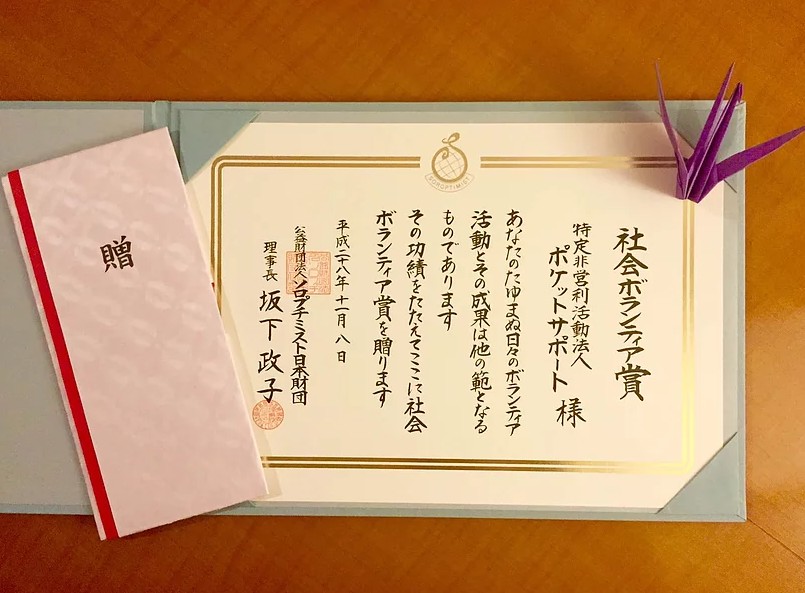 SOROPTIMIST
社会ボランティア賞
特定非営利活動法人
ポケットサポート 様
あなたのたゆまぬ日々のボランティア
活動とその成果は他の範となる
ものであります
その功績をたたえてここに社会
ボランティア賞を贈ります
平成二十八年十一月八日
公益財団法人ソロプチミスト日本財団
理事長 坂下政子
贈